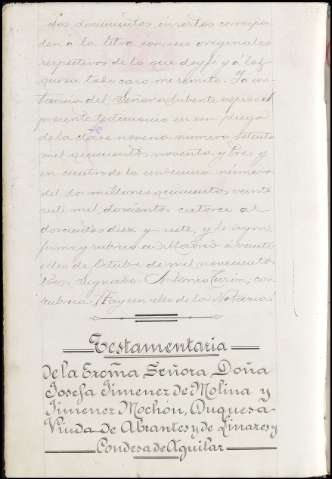 Los documentos insertos correspon
den a la letra con sus originales
respectivos de lo que doy fe y á los
que en todo caso me remito. Y á ins
tancia del Señor expido el
presente testimonio en un pliego
de la clase novena numero setenta
mil quinientos noventa y tres, y
en cuatro de la undecima número
del dos millones quinientos veinte
mil doscientos catorce al
doscientos diez y siete, y lo signo
firmo y rubrico en Madrid á veinte
de Octubre de mil novecientos
Signado = Antonio Turón, con
rubrica. Hay un sello de la Notaría.
Testamentaria
de la Excma Señora Doña
Josefa Jimenez de Molina y
Jimenez Mochon, Duquesa
Viuda de Abrantes y de Linares y
Condesa de Aguilar